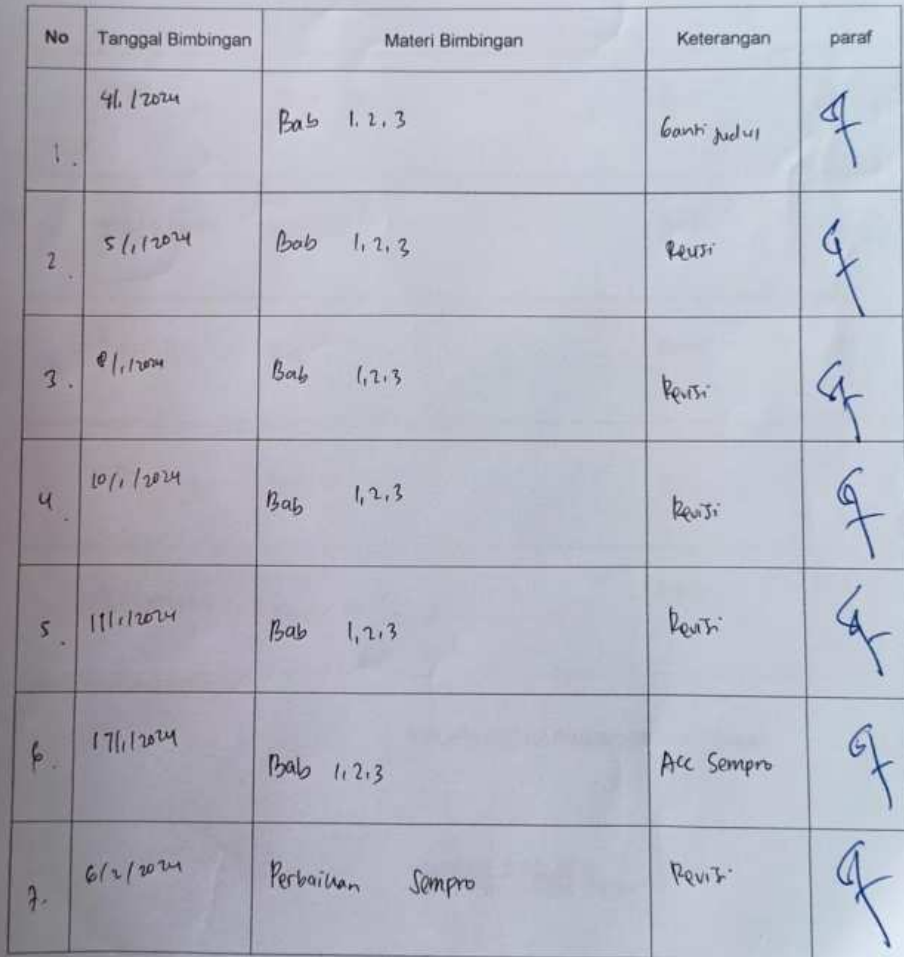 No Tanggal Bimbingan Materi Bimbingan Keterangan paraf
1. 4/1/2024 Bab 1.2.3 Ganti judul
2. 5/1/2024 Bab 1,2,3 Revisi
3. 8/1/2024 Bab 1,2.3 Revisi
4. 10/1/2024 Bab 1,2,3 Revisi
5. 11/1/2024 Bab 1,2,3 Revisi
6. 17/1/2024 Bab 1,2,3 Acc Sempro
7. 6/2/2024 Perbaikan Sempro Revisi